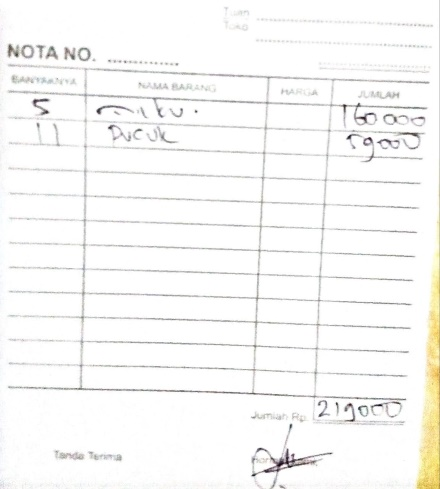 Tuan
Toko
NOTA NO.
BANYAKNYA NAMA BARANG HARGA JUMLAH
5 160000
11 Pucuk 59000
Jumlah Rp. 219000
Tanda Terima